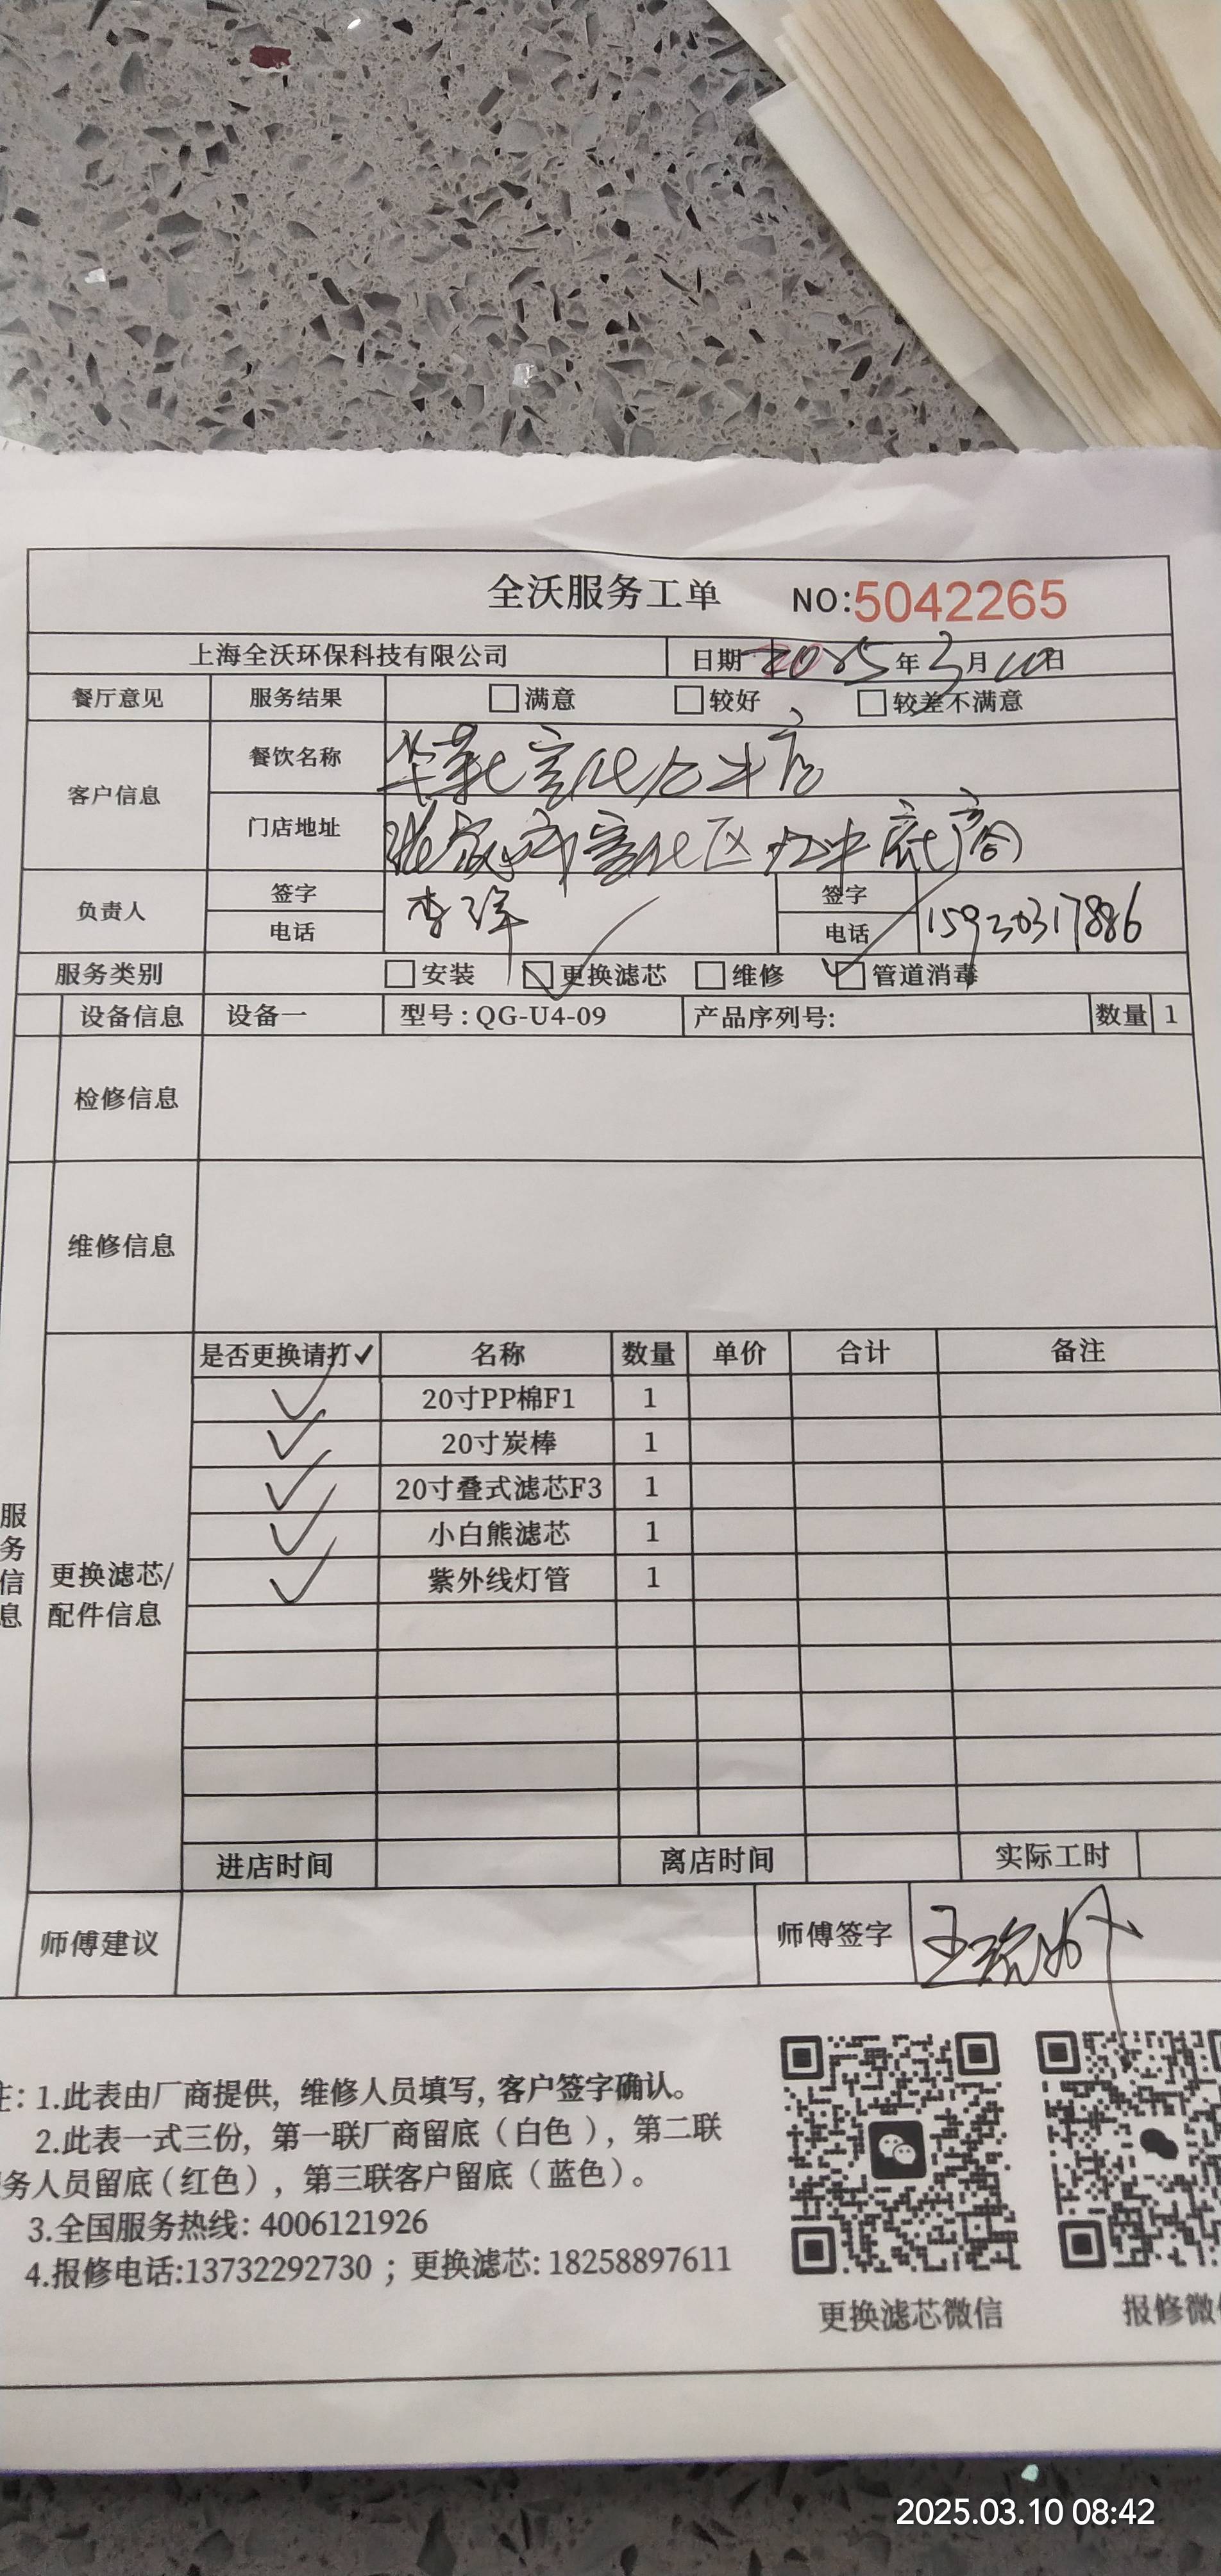 全沃服务工单 NO:5042265
上海全沃环保科技有限公司 日期 2025年3月10日
餐厅意见 服务结果 满意 较好 较差不满意
客户信息 餐饮名称 华莱士宣化
门店地址 张家口市宣化区 底商
负责人 签字 李 签字
电话 电话 15930317886
服务类别 安装 更换滤芯 维修 管道消毒
设备信息 设备一 型号:QG-U4-09 产品序列号: 数量 1
检修信息
维修信息
是否更换请打✓ 名称 数量 单价 合计 备注
✓ 20寸PP棉F1 1
✓ 20寸炭棒 1
✓ 20寸叠式滤芯F3 1
✓ 小白熊滤芯 1
✓ 紫外线灯管 1
服务信息
更换滤芯/
配件信息
进店时间 离店时间 实际工时
师傅建议 师傅签字 王
注: 1.此表由厂商提供, 维修人员填写, 客户签字确认。
2.此表一式三份, 第一联厂商留底（白色）, 第二联
务人员留底（红色）, 第三联客户留底（蓝色）。
3.全国服务热线: 4006121926
4.报修电话:13732292730 ; 更换滤芯: 18258897611
更换滤芯微信 报修微
2025.03.10 08:42